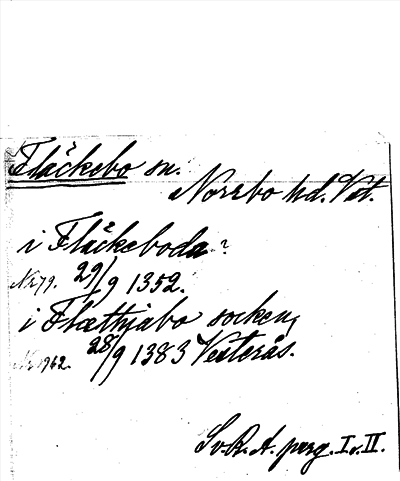 Fläckebo sn.
Norrbo hd. Vstm.
i Fläckeboda?
Nr 79. 29/9 1352.
i Flætthjabo socken,
Nr 1962. 28/9 1383 Vesterås.
Sv. R. A. perg. I o. II.